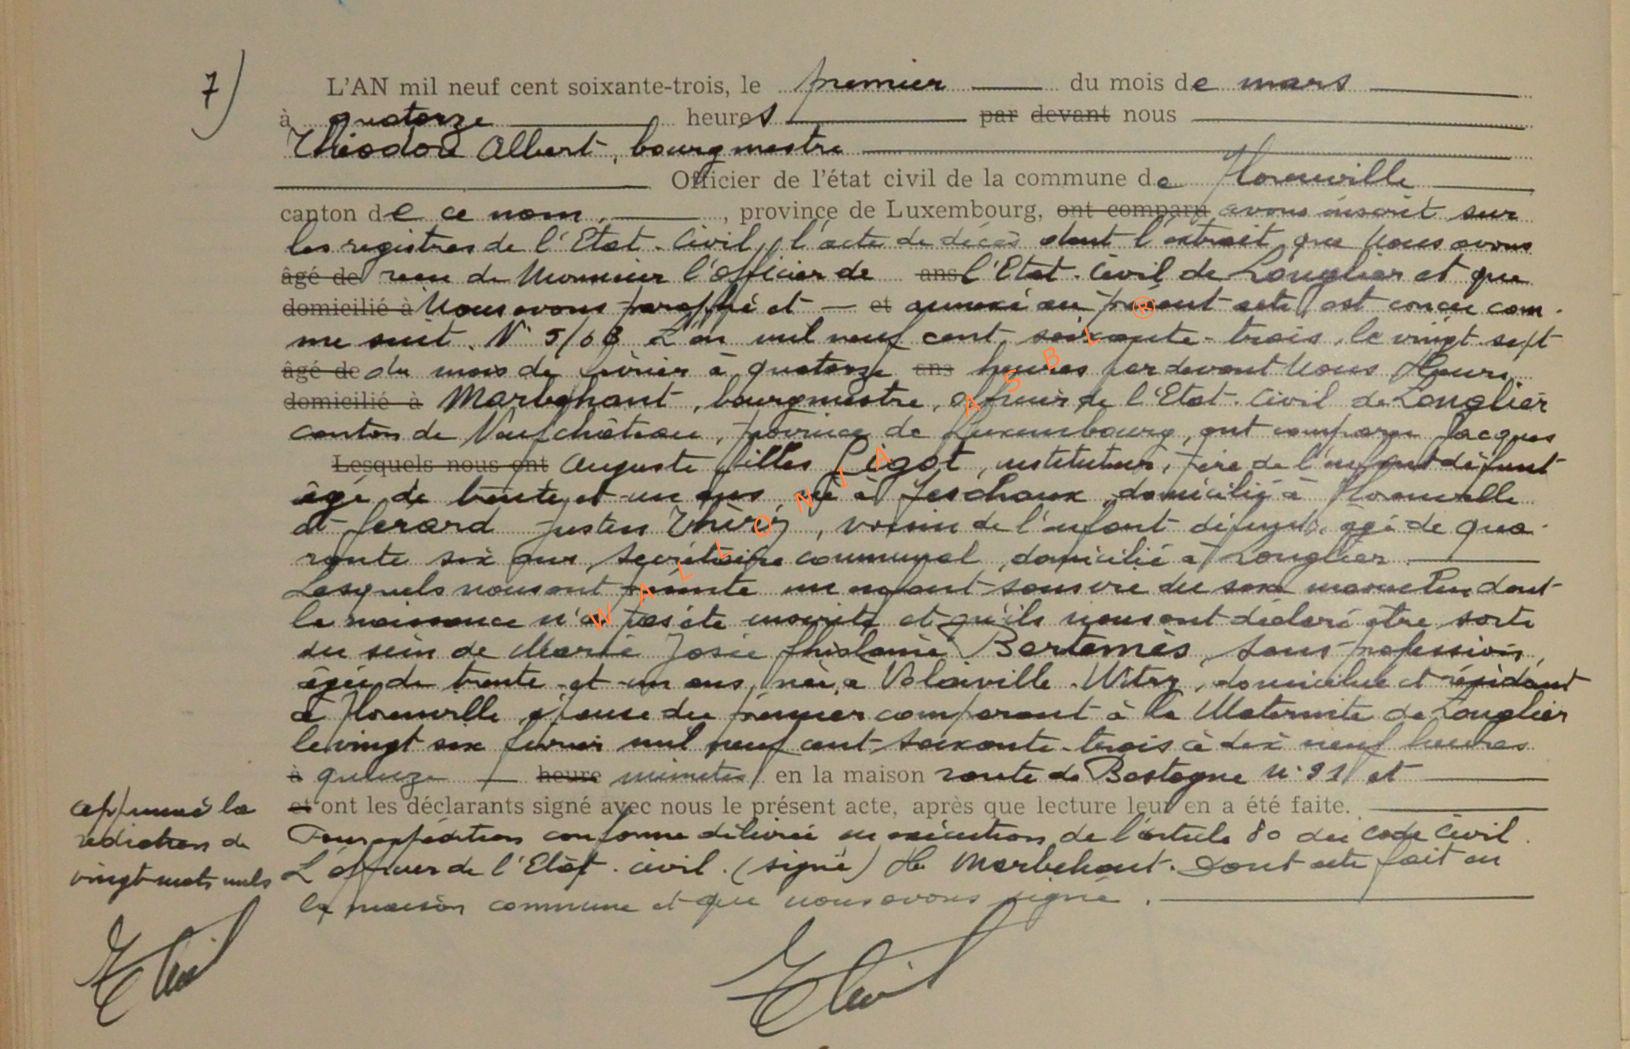 7)
L'AN mil neuf cent soixante-trois, le premier du mois de mars
à quatorze heures par devant nous
Théodor Albert, bourgmestre
Officier de l'état civil de la commune de Florenville
canton de ce nom, province de Luxembourg, ont comparu avons inscrit sur
les registres de l'Etat-Civil, l'acte de décès dont l'extrait que Nous avons
âgé de recu de Monsieur l'officier de ans l'Etat-Civil de Longlier et que
domicilié à Nous avons paraphé et et annexé au présent acte est concu com-
me suit. N° 5/63 L'an mil neuf cent soixante-trois, le vingt sept
âgé de du mois de février à quatorze ans heures par devant Nous Henri
domicilié à Marbehant, bourgmestre, officier de l'Etat-Civil de Longlier
canton de Neufchâteau, province de Luxembourg, ont comparu Jacques
Lesquels nous ont Auguste Gilles Ligot, instituteur, père de l'enfant défunt
âgé de trente et un ans né à domicilié à Florenville
et Gérard Justin Thiry, voisin de l'enfant défunt, âgé de qua-
rante six ans, secrétaire communal, domicilié à Longlier
Lesquels nous ont présenté un enfant sans vie du sexe masculin dont
la naissance n'a pas été inscrite et qu'ils nous ont déclaré être sorti
du sein de Marie Josée Ghislaine Bertemès, sans profession,
âgée de trente et un ans, née à Volaiville-Witry, domiciliée et résidant
à Florenville, épouse du premier comparant à la Maternité de Longlier
le vingt six février mil neuf cent soixante-trois à dix neuf heures
à quinze heure minutes en la maison route de Bastogne N° 91 et
et ont les déclarants signé avec nous le présent acte, après que lecture leur en a été faite.
Pour expédition conforme délivrée en exécution de l'article 80 du Code Civil.
L'officier de l'Etat-civil. (signé) H. Marbehant. Dont acte fait en
la maison commune et que nous avons signé.
approuvé la
rédiction de
vingt mots nuls
WALLONIA ASBL ®